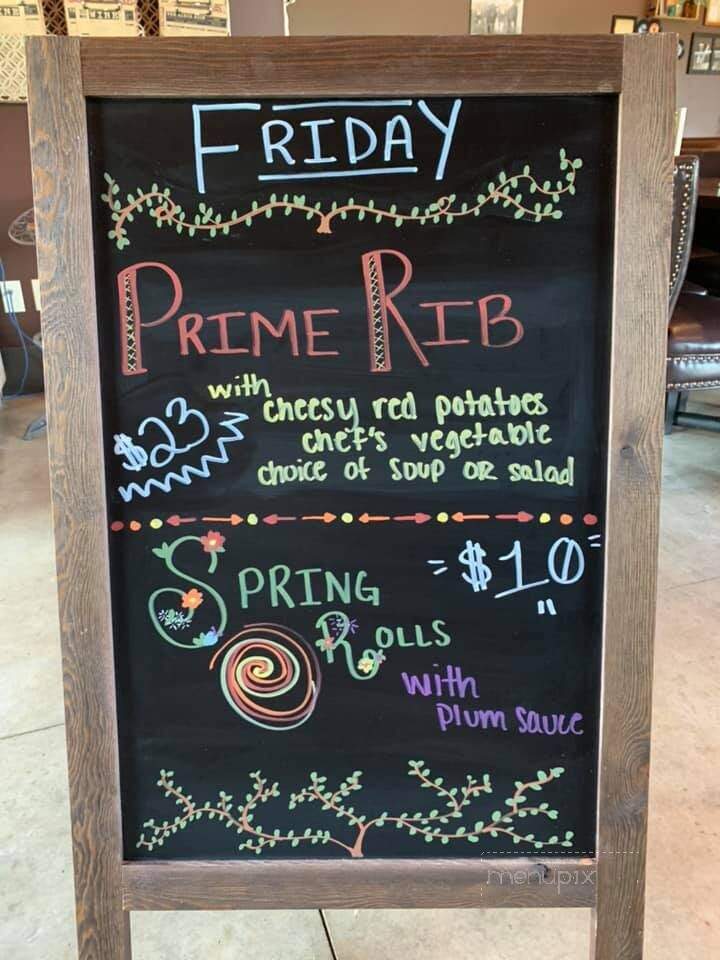 FRIDAY
PRIME RIB
$23
with
cheesy red potatoes
chef's vegetable
choice of soup OR salad
SPRING
ROLLS
$10
with
plum sauce
menupix